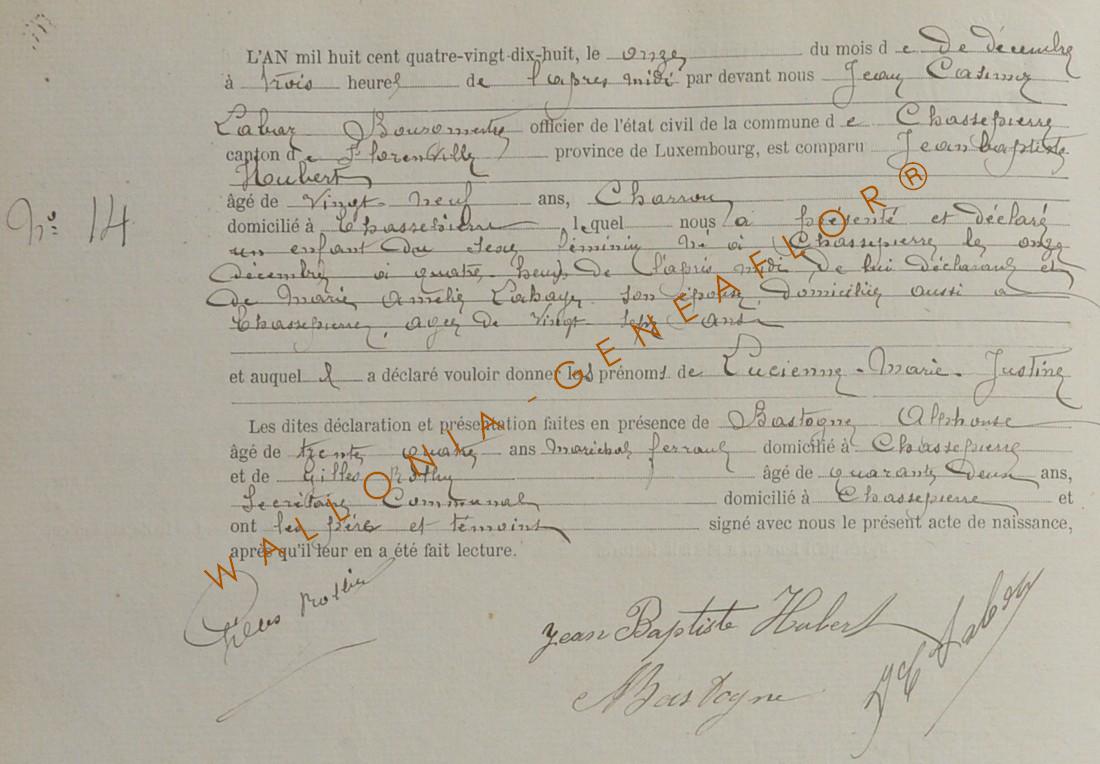 L'AN mil huit cent quatre-vingt-dix-huit, le onze du mois d e De décembre
à trois heures de l'après midi par devant nous Jean Casimir
Labray Bourgmestre officier de l'état civil de la commune d e Chassepierre
canton d e Florenville province de Luxembourg, est comparu Jean baptiste
Houbert
âgé de vingt-neuf ans, Charron
domicilié à Chassepierre lequel nous a présenté et déclaré
N° 14
un enfant du sexe féminin né à Chassepierre le onze
décembre à quatre heures de l'après midi de lui déclarant et
de Marie Amélie Lahaye son épouse domiciliée aussi à
Chassepierre, agée de vingt sept ans
et auquel il a déclaré vouloir donner les prénoms de Lucienne-Marie-Justine
Les dites déclaration et présentation faites en présence de Bastogne Alphonse
âgé de trente quatre ans maréchal ferrant domicilié à Chassepierre
et de Gilles âgé de quarante deux ans,
Secrétaire Communal domicilié à Chassepierre et
ont les père et témoins signé avec nous le présent acte de naissance,
après qu'il leur en a été fait lecture.
Jean Baptiste Hubert
A Bastogne
WALLONIA-GENEAFLOR®